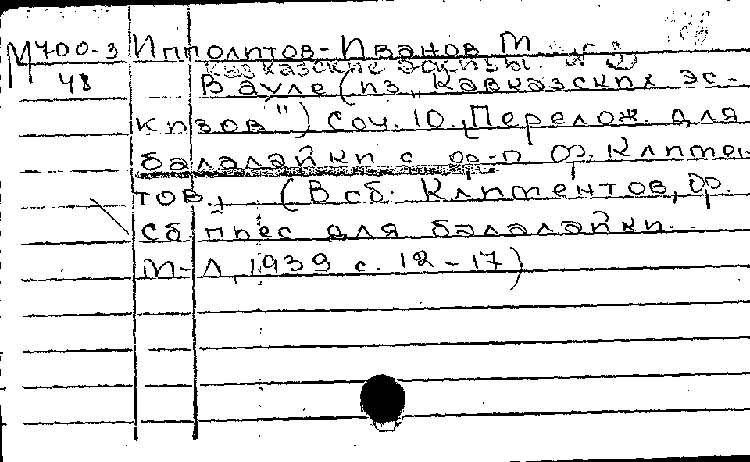 М700-3 Ипполитов-Иванов М.
48 Кавказские эскизы. № 2)
В ауле (из „Кавказских эс-
кизов") Соч. 10. Перелож. для
балалайки с ф-п Ф. Клімен-
тов. (В сб. Климентов, Ф.
Сб пьес для балалайки.
М-Л, 1939 с. 12-17)